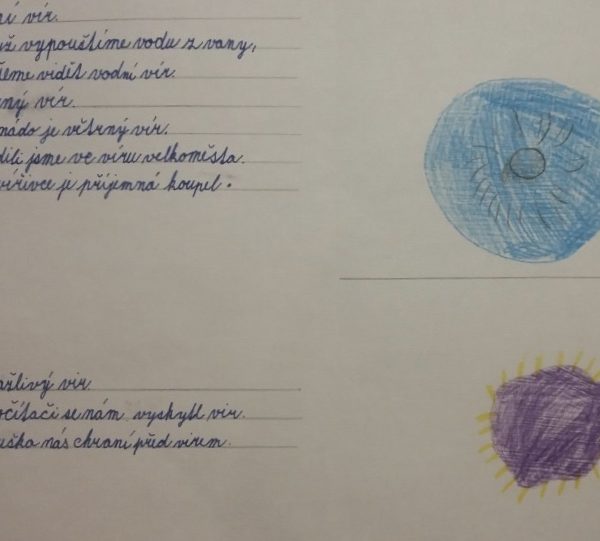 ní vír.
yž vypouštíme vodu z vany,
žeme vidět vodní vír.
rný vír.
nádo je větrný vír.
dili jsme ve víru velkoměsta.
vířivce je příjemná koupel.
ažlivý vir.
očítači se nám vyskytl vir.
uška nás chraní před virem.